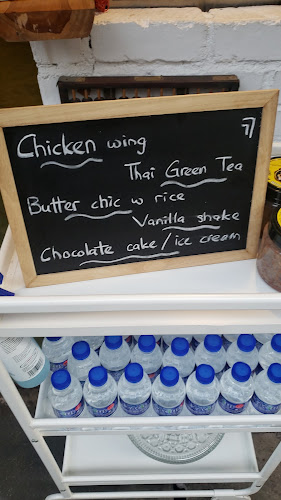 Chicken wing
Thai Green Tea
Butter chic w rice
Vanilla shake
Chocolate cake / ice cream